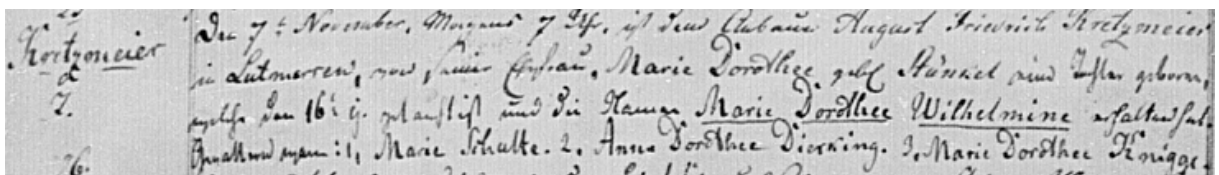 Kortzmeier
Den 7t. November, Morgens 7 Uhr, ist dem Anbauer August Friedrich Kretzmeier
in Lutmersen, von seiner Ehefrau, Marie Dorothee gebl Stünkel eine Tochter geboren,
welche den 16t. ej. getauft ist und die Namen Marie Dorothee Wilhelmine erhalten hat.
7.
1, Marie Schulte. 2, Anne Dorothee Dierking. 3, Marie Dorothee Knigge.
26.